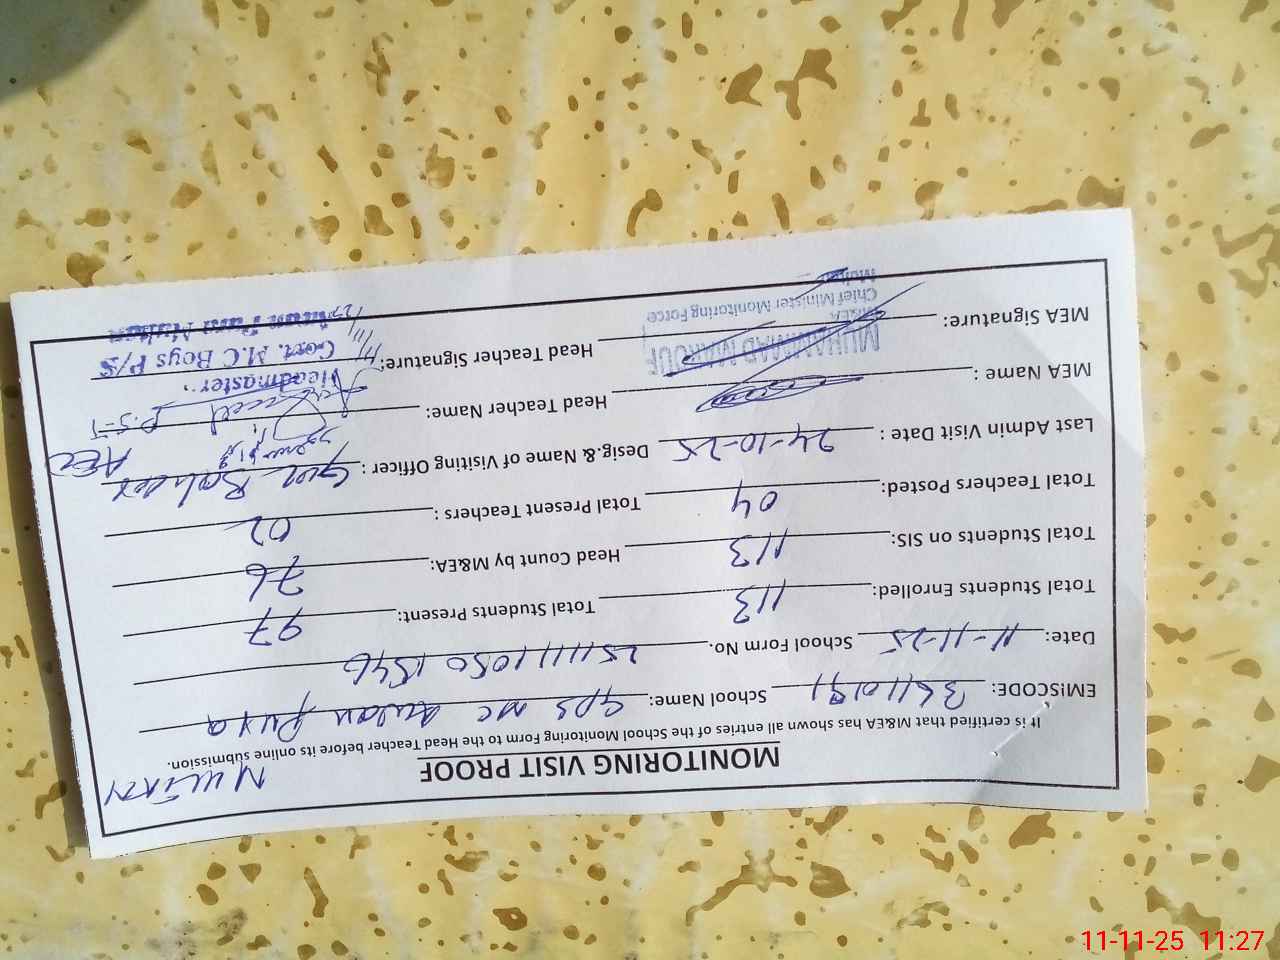 MULTAN
MONITORING VISIT PROOF
It is certified that M&EA has shown all entries of the School Monitoring Form to the Head Teacher before its online submission.
EMISCODE: 36110191 School Name: GPS MC Pura
Date: 11-11-25 School Form No. 2511111050 1546
Total Students Enrolled: 113 Total Students Present: 97
Total Students on SIS: 113 Head Count by M&EA: 76
Total Teachers Posted: 04 Total Present Teachers : 02
Last Admin Visit Date : 24-10-25 Desig.& Name of Visiting Officer : AEO
MEA Name : Head Teacher Name: P.S.T
MEA Signature: Head Teacher Signature:
MUHAMMAD MAROUF
M&EA
Chief Minister Monitoring Force
Multan
Headmaster
Govt. M.C Boys P/S
Multan
11-11-25 11:27